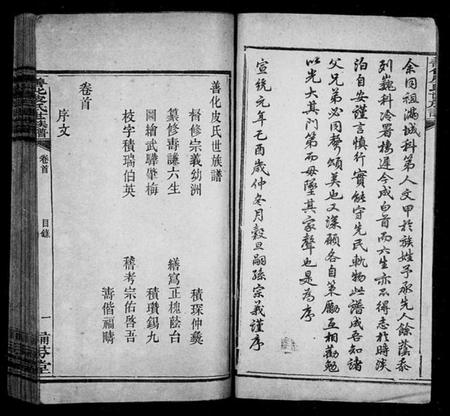 余同祖滿城科第人文甲於族姓予承先人餘蔭忝
列巍科冷署棲遲今成白首而六生亦不得志於時淡
泊自安謹言慎行實能守先民軌物此譜成吾知諸
父兄弟必同聲頌美也又深願各自策勵互相勸勉
以光大其門第而毋墜其家聲也是為序
宣統元年己酉歲仲冬月穀旦嗣孫宗義謹序
善化皮氏世族譜
督修宗義幼洲 積琛仲彝
纂修壽謙六生 繕寫正槐蓀台
圖繪武驊肇梅 積瓚錫九
校字積瑞伯英 稽考宗佑啓吾
壽偕福疇
卷首
序文
善化皮氏世族譜 卷首 目錄 一